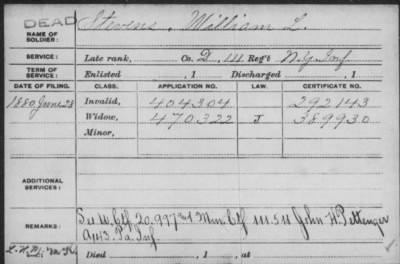 DEAD
NAME OF SOLDIER: Stevens, William L.
SERVICE: Late rank, Co. D, 111 Reg't N.Y. Inf
TERM OF SERVICE: Enlisted , 1 Discharged , 1
DATE OF FILING. CLASS. APPLICATION NO. LAW. CERTIFICATE NO.
1880 June 28 Invalid, 404304 292143
Widow, 470322 J 389930
Minor,
ADDITIONAL SERVICES:
REMARKS: See W. Ctf 20.997 and Min. Ctf 111511 John H. Pettenger
A 143. Pa. Inf.
Died , 1 , at